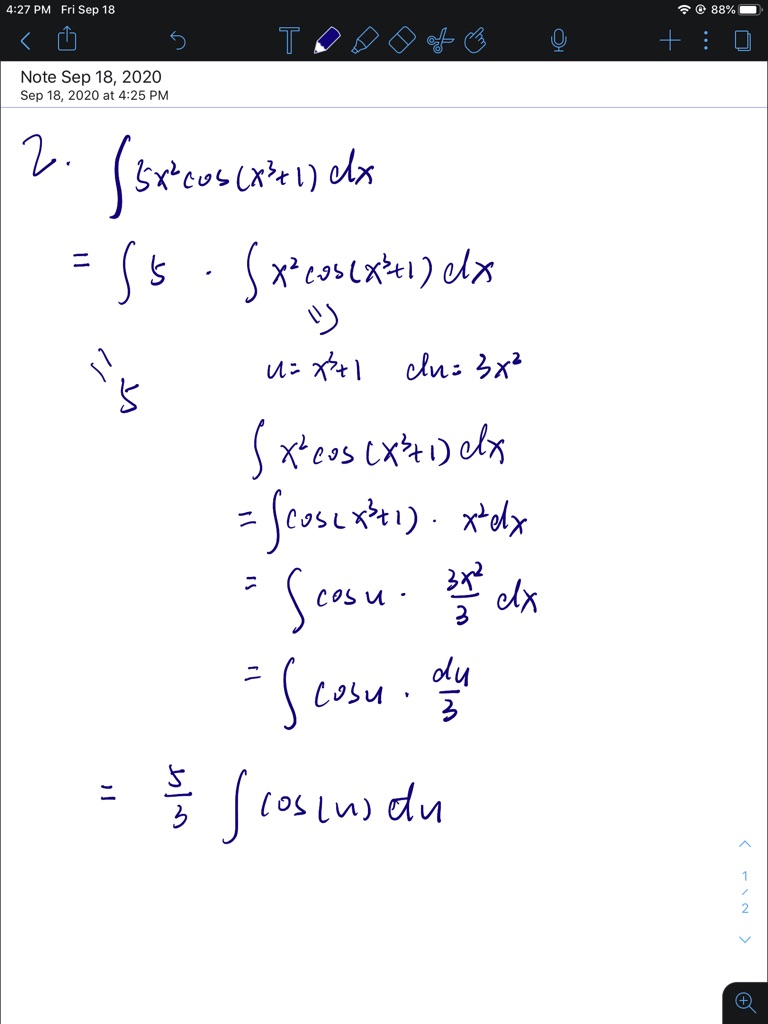 4:27 PM Fri Sep 18 88%
T
Note Sep 18, 2020
Sep 18, 2020 at 4:25 PM
2. ∫ 5x² cos(x³+1) dx
= ∫ 5 · ∫ x² cos(x³+1) dx
=
u = x³+1 du = 3x²
= 5
∫ x² cos(x³+1) dx
= ∫ cos(x³+1) · x² dx
= ∫ cos u · 3x²/3 dx
= ∫ cos u · du/3
= 5/3 ∫ cos(u) du
1
/
2